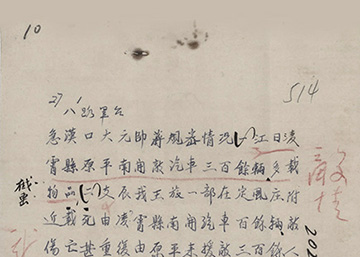 10
514
27/1
八路軍台
急漢口大元帥蔣 情況(一)江日凌
崞縣原平南開敵汽車三百餘輛多載
物品(二)文辰我王旅一部在 庄附
近 由 崞縣南開汽車百餘輛敵人
傷亡甚重後由原平來援敵三百餘
202